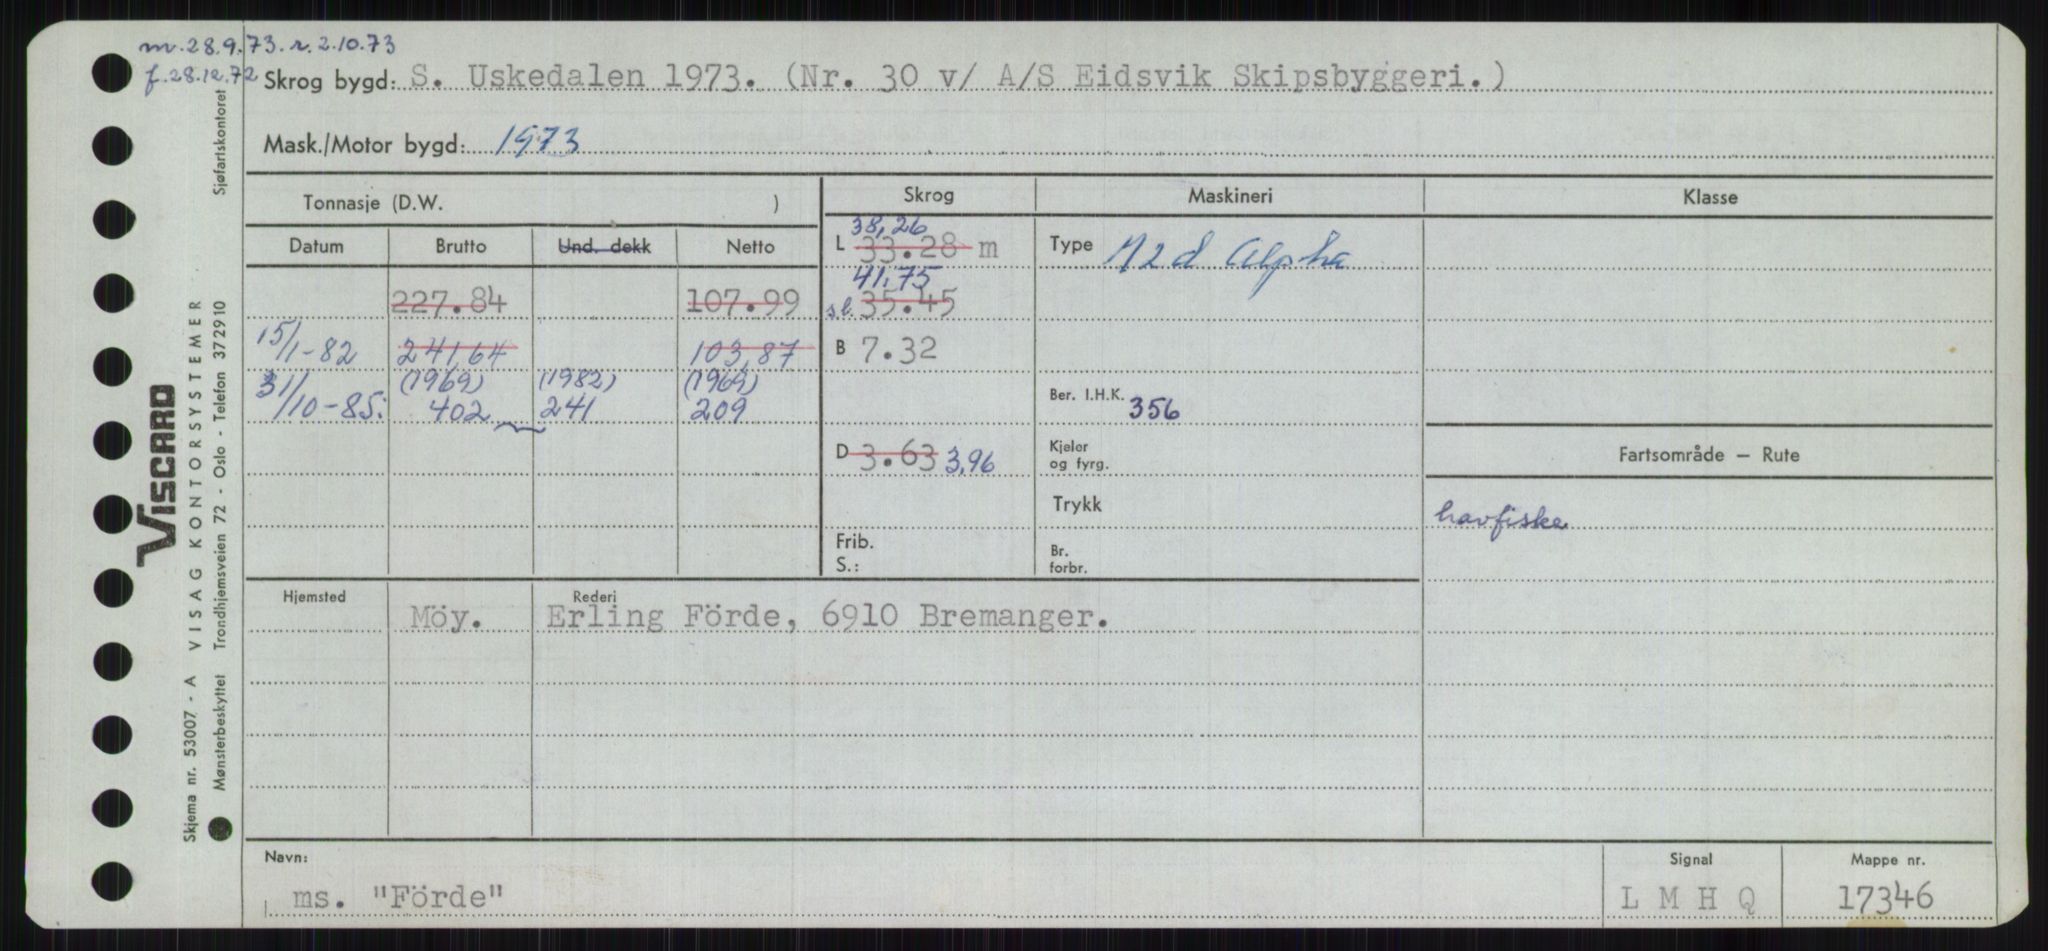 m.28.9.73. r.2.10.73
f.28.12.72
Skrog bygd: S. Uskedalen 1973. (Nr. 30 v/ A/S Eidsvik Skipsbyggeri.)
Mask./Motor bygd: 1973
Tonnasje (D.W. )
Skrog
Maskineri
Klasse
Datum
Brutto
Und. dekk
Netto
38,26
L 33.28 m
Type
12d Alpha
41,75
227.84
107.99
sl. 35.45
15/1-82
241,64
103,87
B 7.32
(1969) (1982) (1969)
31/10-85: 402 241 209
Ber. I.H.K. 356
Fartsområde — Rute
D 3.63 3,96
Kjeler
og fyrg.
Trykk
havfiske
Frib.
S.:
Br.
forbr.
Hjemsted
Rederi
Möy. Erling Förde, 6910 Bremanger.
Navn:
Signal
Mappe nr.
ms. "Förde"
L M H Q
17346
VISCARD
Skjema nr. 53007 - A VISAG KONTORSYSTEMER
Mønsterbeskyttet Trondhjemsveien 72 - Oslo - Telefon 372910 Sjøfartskontoret